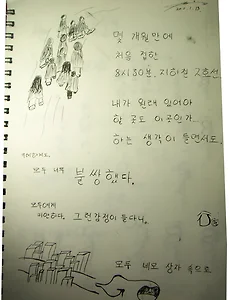 몇 개월만에
처음 접한
8시 30분, 지하철 2호선.
내가 원래 있어야
할 곳도 이곳인가
하는 생각이 들면서도,
모두 너무 불쌍했다.
모두에게
미안하다. 그런 감정이 들다니.
모두 네모 상자 속으로